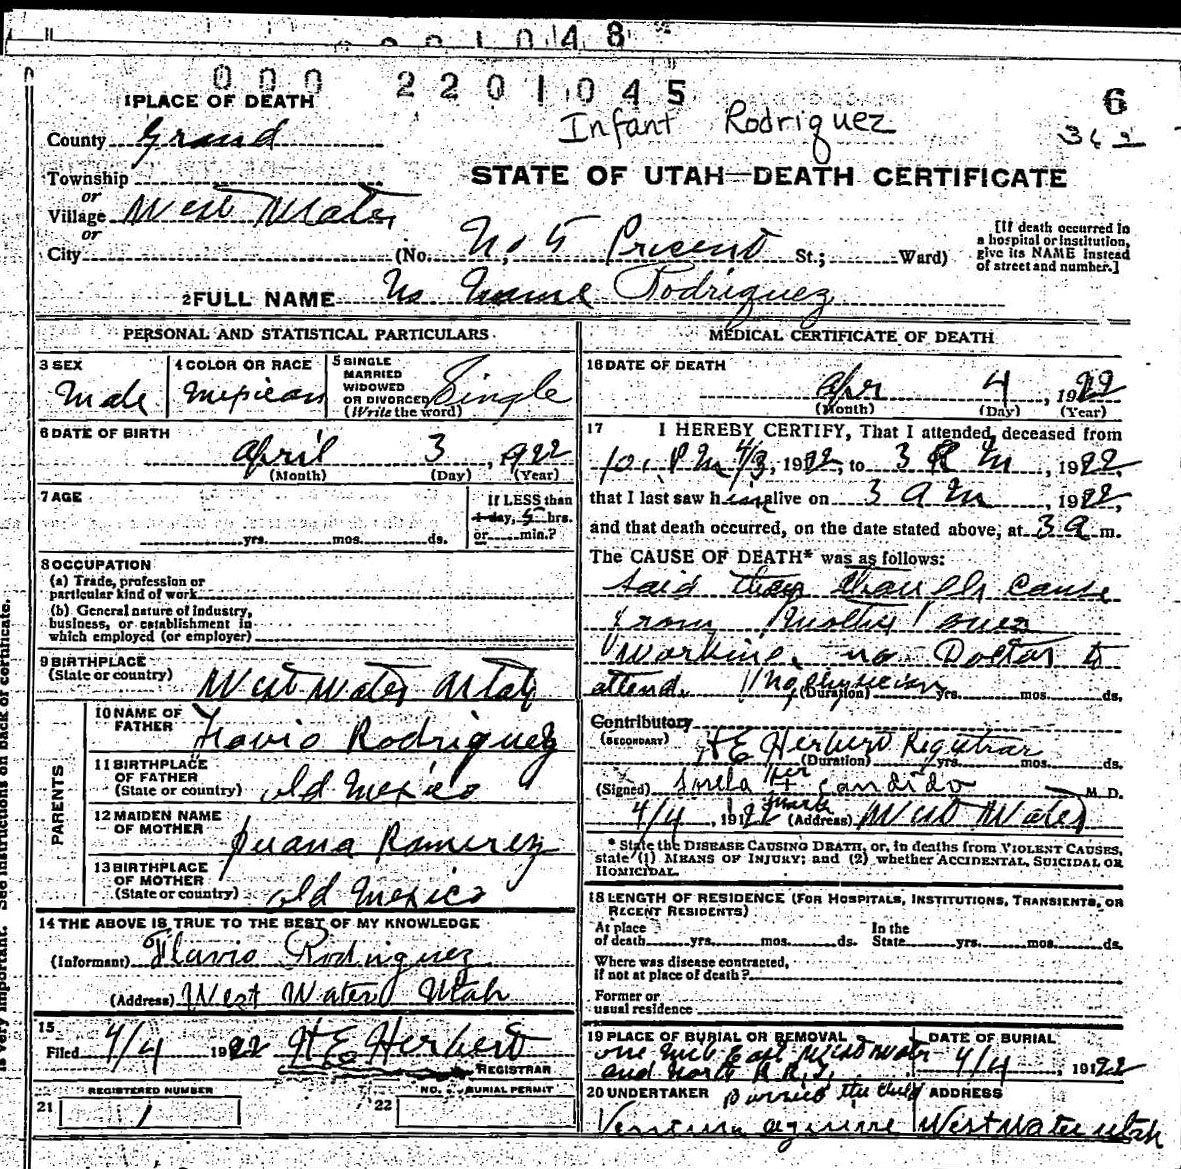 1048
000 2201045
6
Infant Rodriguez
362
1 PLACE OF DEATH
County Grand
STATE OF UTAH—DEATH CERTIFICATE
Township
or
Village West Water
or
City (No. No, 5 Precent St.; Ward)
[If death occurred in
a hospital or institution,
give its NAME instead
of street and number.]
2 FULL NAME No Name Rodriguez
PERSONAL AND STATISTICAL PARTICULARS
3 SEX
Male
4 COLOR OR RACE
Mexican
5 SINGLE
MARRIED
WIDOWED
OR DIVORCED
(Write the word)
Single
6 DATE OF BIRTH
April 3, 1922
(Month) (Day) (Year)
7 AGE
yrs. mos. ds.
If LESS than
1 day, 5 hrs.
or min.?
8 OCCUPATION
(a) Trade, profession or
particular kind of work
(b) General nature of industry,
business, or establishment in
which employed (or employer)
9 BIRTHPLACE
(State or country)
West Water Utah
PARENTS
10 NAME OF
FATHER
Flavio Rodriguez
11 BIRTHPLACE
OF FATHER
(State or country) old Mexico
12 MAIDEN NAME
OF MOTHER
Juana Ramirez
13 BIRTHPLACE
OF MOTHER
(State or country) old Mexico
14 THE ABOVE IS TRUE TO THE BEST OF MY KNOWLEDGE
(Informant) Flavio Rodriguez
(Address) West Water Utah
15
Filed 4/4 1922 H E Herbert
REGISTRAR
REGISTERED NUMBER
21 1
NO. BURIAL PERMIT
22
MEDICAL CERTIFICATE OF DEATH
16 DATE OF DEATH
Apr 4, 1922
(Month) (Day) (Year)
17 I HEREBY CERTIFY, That I attended deceased from
10, P M 4/3, 1922, to 3 A M, 1922,
that I last saw him alive on 3 A M, 1922,
and that death occurred, on the date stated above, at 3 a m.
The CAUSE OF DEATH* was as follows:
said they cause
from Mother over
Working, no Doctor to
attend. No physician
(Duration) yrs. mos. ds.
Contributory
(SECONDARY)
H E Herbert Registrar
(Duration) yrs. mos. ds.
(Signed) her + Candido M. D.
mark
4/4, 1922 (Address) West Water
* State the DISEASE CAUSING DEATH, or, in deaths from VIOLENT CAUSES,
state (1) MEANS OF INJURY; and (2) whether ACCIDENTAL, SUICIDAL OR
HOMICIDAL.
18 LENGTH OF RESIDENCE (FOR HOSPITALS, INSTITUTIONS, TRANSIENTS, OR
RECENT RESIDENTS)
At place
of death yrs. mos. ds.
In the
State yrs. mos. ds.
Where was disease contracted,
if not at place of death?
Former or
usual residence
19 PLACE OF BURIAL OR REMOVAL
one mile East West Water
and North R.R.T.
DATE OF BURIAL
4/4, 1922
20 UNDERTAKER burried the child
ADDRESS
Aguirre West Water Utah
is very important. See instructions on back of certificate.